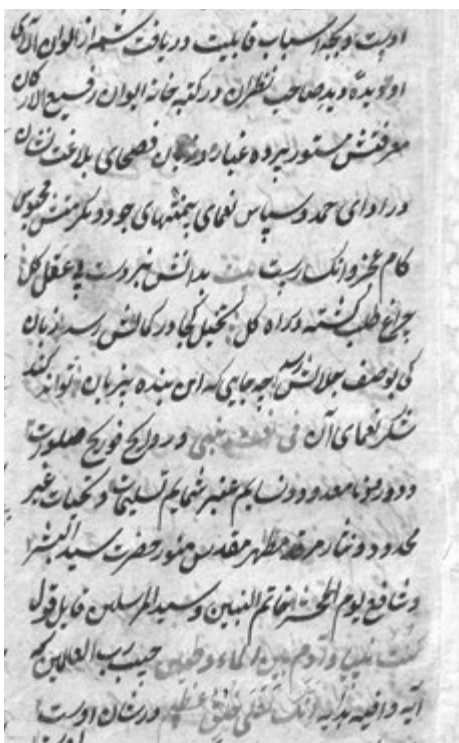 اوست و بجد اسباب قابلیت دریافت شمه از الوان آلای
او و دیده صاحب نظران در کتبه خانه ایوان رفیع الارکان
معرفتش مستور پرده غبار و زبان فصحای بلاغت نشان
در ادای حمد و سپاس نعمای بی منتهای جود و کرمش
کام عجز و انکسار بیت بدانش نبردست پی عقل کل
چراغ طلب کشته در راه کل تخیل کجا در کمالش رسد زبان
کی بوصف جلالش چه جایی که این بنده بی زبان تواند کند
شکر نعمای آن فی نعت نبی و روایح فوایح صلوات
درود نامعدود و نسایم عنبر شمایم تسلیمات و تحیات غیر
محدود و نثار مرقد مطهر مقدس منور حضرت سید البشر
و شافع یوم المحشر خاتم النبیین و سید المرسلین قایل قول
کنت نبیا و آدم بین الماء و الطین حبیب رب العالمین که
آیه وافیه هدایه انک لعلی خلق عظیم در شان اوست